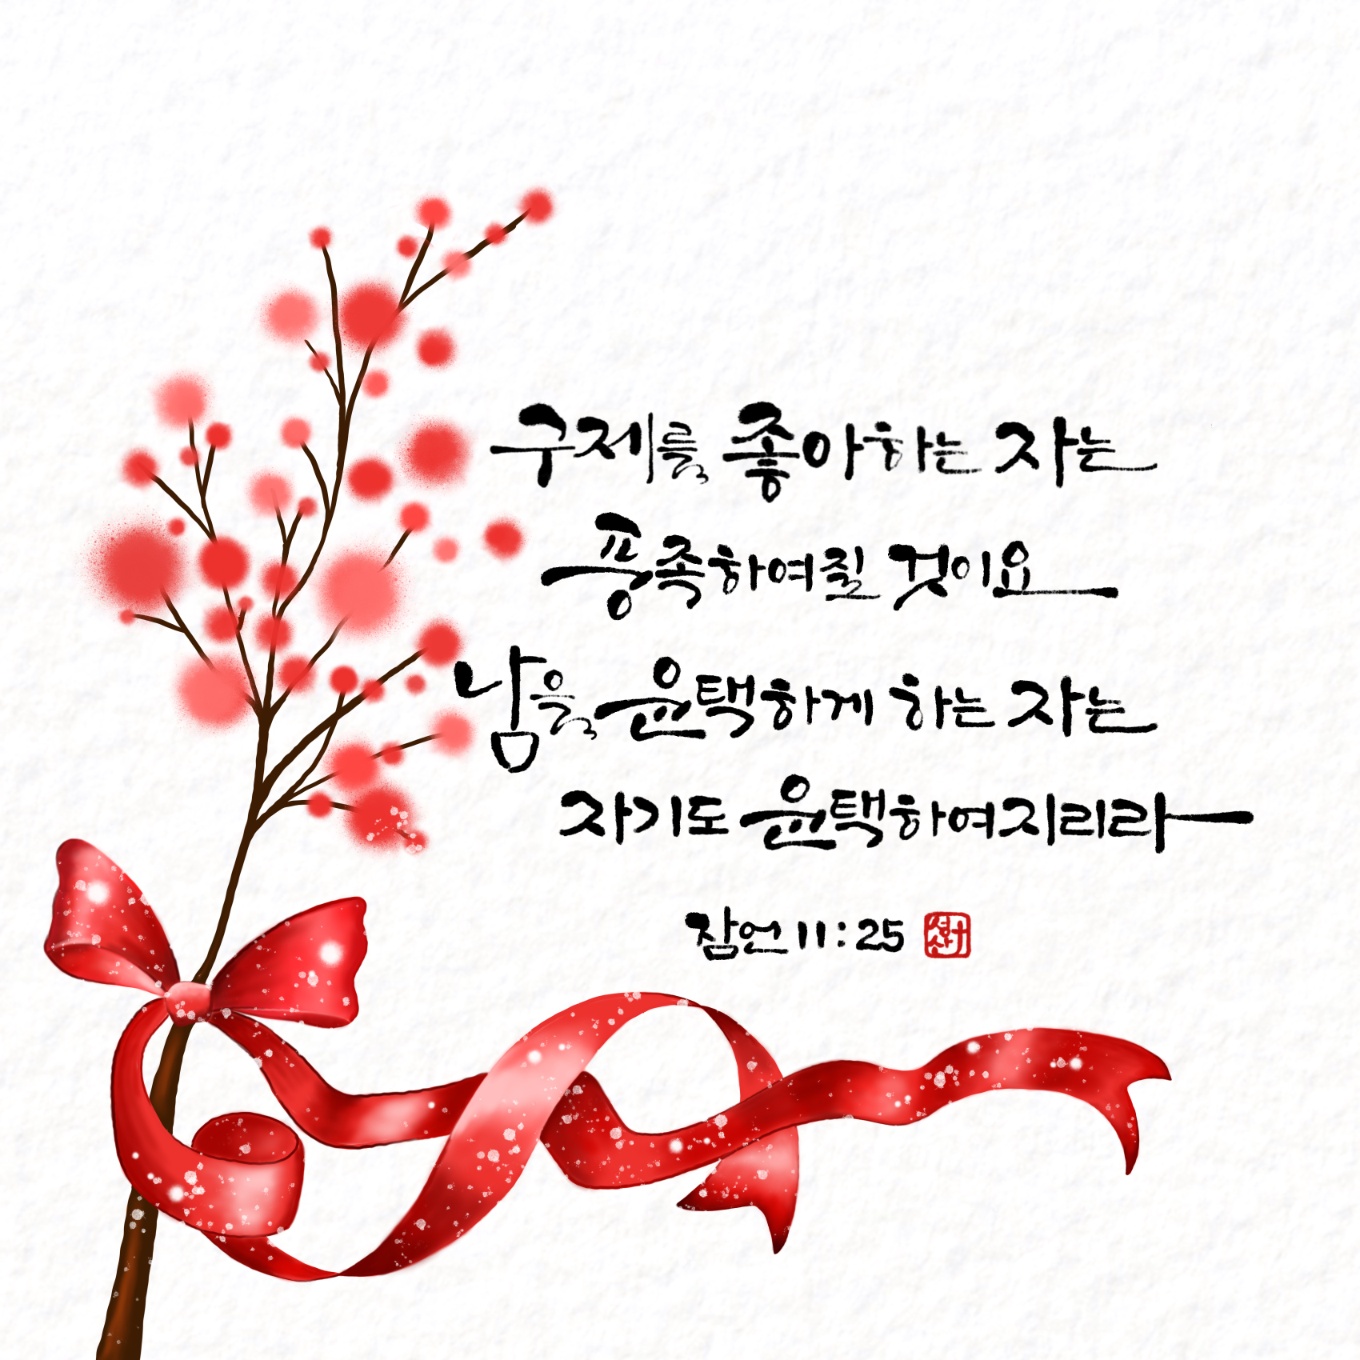 구제를 좋아하는 자는
풍족하여질 것이요
남을 윤택하게 하는 자는
자기도 윤택하여지리라
잠언 11:25